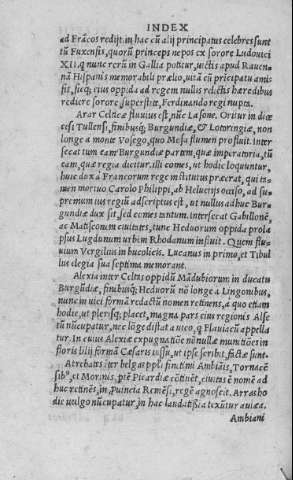 INDEX
ad Frācos redijt. in hac cū alij principatus celebres sunt
tū Fuxensis, quorū princeps nepos ex sorore Ludouici
XII. q nunc rerū in Gallia potitur, uictis apud Rauen-
nā Hispanis memorabili prælio, uitā cū prīcipatu amis
sit, sicq; eius oppida ad regem nullis relictis hæredibus
rediere sorore superstite, Ferdinando regi nupta.
Arar Celticæ fluuius est, nūc La sone. Oritur in diœ
cesi Tullensi, finibusq; Burgundiæ, & Lotoringiæ, non
longe a monte Vosego, quo Mosa flumen profluit. Inter
secat tum eam Burgundiæ partem, quæ imperatoria, tū
eam, quæ regia dicitur. illi comes, ut hodie loquuntur,
huic dux a Francorum rege institutus præerat, qui ta-
men mortuo Carolo Philippi, ab Heluetijs occiso, ad su-
premum ius regū adscriptus est, ut nullus ad huc Bur-
gundiæ dux sit, sed comes tantum. Intersecat Gabillonē,
ac Matisconem ciuitates, tunc Heduorum oppida prola
psus Lugdunum urbem Rhodanum influit. Quem flu-
uium Vergilius in bucolicis, Lucanus in primo, et Tibul
lus elegia sua septima memorant.
Alexia inter Celtas oppidū Mādubiorum in ducatu
Burgūdiæ, finibusq; Heduorū nō longe a Lingonibus,
nunc in uici formā redactū nomen retinens, a quo etiam
hodie, ut plerisq; placet, magna pars eius regionis Alse
tū nūcupatur, nec lōge distat a uico, q Flauiacū appella
tur. In cuius Alexiæ expugnatiōe nōnullæ munitiōes in
floris lilij formā Cæsaris iussu, ut ipse scribit, factæ sunt.
Atrebates īter belgas ppli finitimi Ambiāis, Tornacē
sibꝰ, et Morinis, ptē Picardiæ cōtinēt, ciuitas ē nomē ad
huc retinēs, in puincia Remēsi, regē agnoscit. Arras ho
die uulgo nūcupatur, in hac laudatissīa texūtur aulæa.
Ambiani